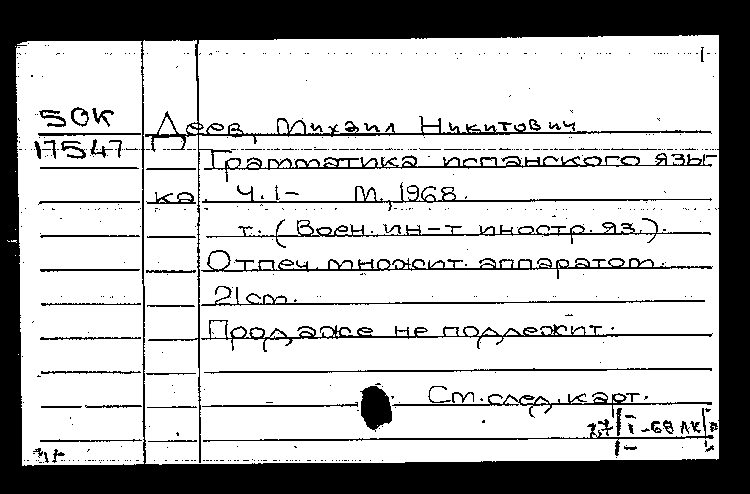 1
50К
17547
Деев, Михаил Никитович
Грамматика испанского язы
ка. Ч. 1- М., 1968.
т. (Воен. ин-т иностр. яз.).
Отпеч. множит. аппаратом.
21 см.
Продаже не подлежит.
См. след. карт.
I-68 ЛК